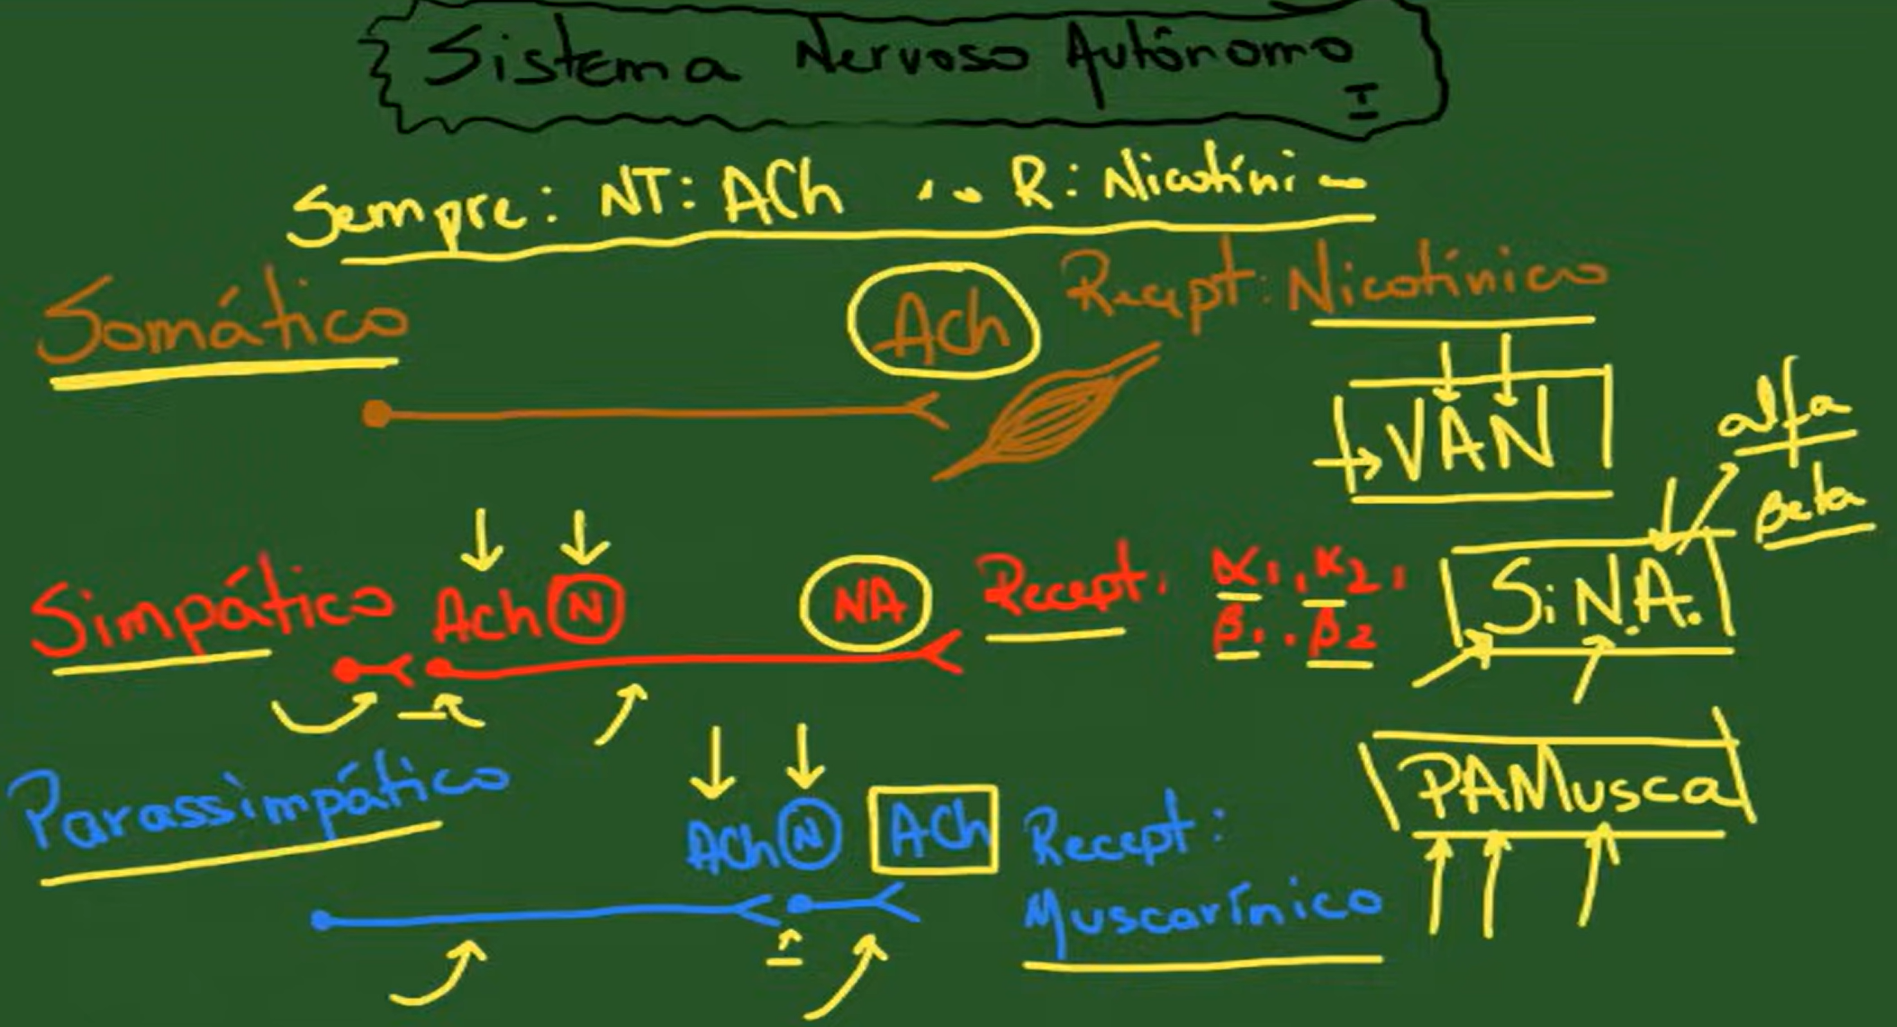 Sistema Nervoso Autônomo
I
Sempre: NT: ACh R: Nicotíni
Somático
Ach
Recept: Nicotínico
VAN
alfa
Beta
Simpático Ach N
NA
Recept. α1, α2,
β1. β2
SiN.A.
Parassimpático
ACh N ACh
Recept:
Muscarínico
PAMusca